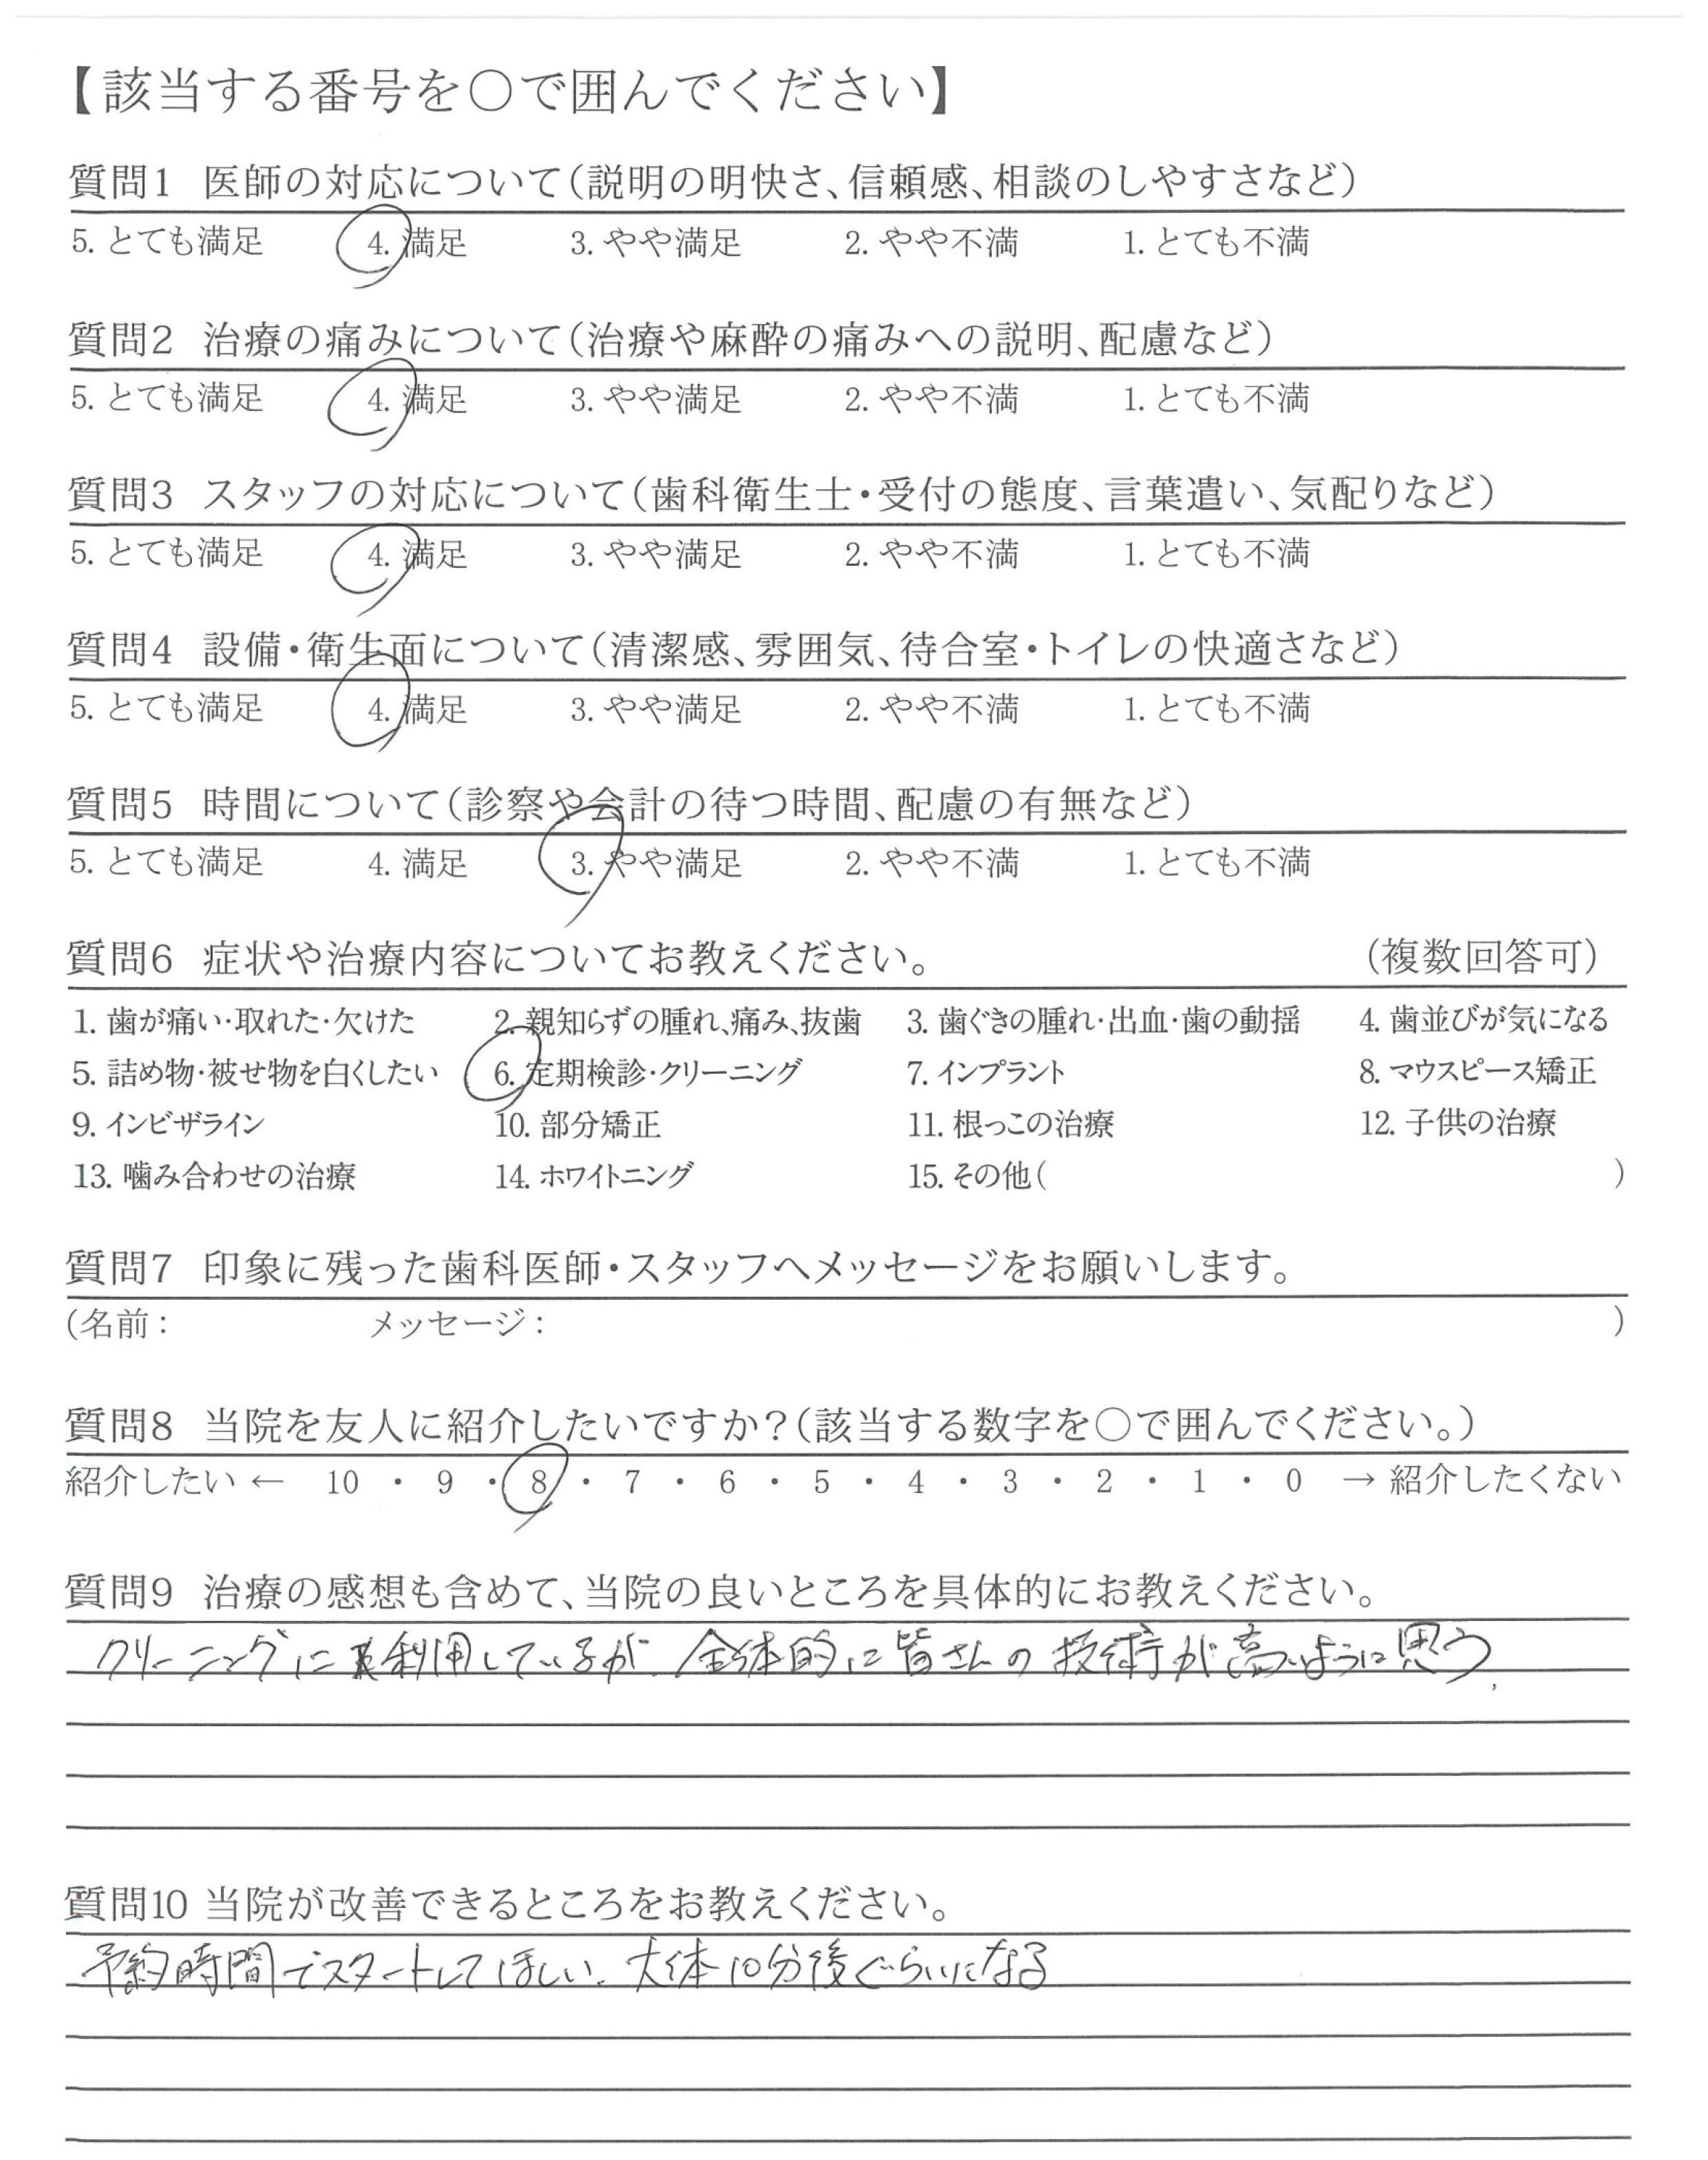 【該当する番号を○で囲んでください】
質問1 医師の対応について(説明の明快さ、信頼感、相談のしやすさなど)
5. とても満足 4. 満足 3. やや満足 2. やや不満 1. とても不満
質問2 治療の痛みについて(治療や麻酔の痛みへの説明、配慮など)
5. とても満足 4. 満足 3. やや満足 2. やや不満 1. とても不満
質問3 スタッフの対応について(歯科衛生士・受付の態度、言葉遣い、気配りなど)
5. とても満足 4. 満足 3. やや満足 2. やや不満 1. とても不満
質問4 設備・衛生面について(清潔感、雰囲気、待合室・トイレの快適さなど)
5. とても満足 4. 満足 3. やや満足 2. やや不満 1. とても不満
質問5 時間について(診察や会計の待つ時間、配慮の有無など)
5. とても満足 4. 満足 3. やや満足 2. やや不満 1. とても不満
質問6 症状や治療内容についてお教えください。 (複数回答可)
1. 歯が痛い・取れた・欠けた 2. 親知らずの腫れ、痛み、抜歯 3. 歯ぐきの腫れ・出血・歯の動揺 4. 歯並びが気になる
5. 詰め物・被せ物を白くしたい 6. 定期検診・クリーニング 7. インプラント 8. マウスピース矯正
9. インビザライン 10. 部分矯正 11. 根っこの治療 12. 子供の治療
13. 噛み合わせの治療 14. ホワイトニング 15. その他( )
質問7 印象に残った歯科医師・スタッフへメッセージをお願いします。
(名前: メッセージ: )
質問8 当院を友人に紹介したいですか?(該当する数字を○で囲んでください。)
紹介したい ← 10 ・ 9 ・ 8 ・ 7 ・ 6 ・ 5 ・ 4 ・ 3 ・ 2 ・ 1 ・ 0 → 紹介したくない
質問9 治療の感想も含めて、当院の良いところを具体的にお教えください。
クリーニングに利用しているが、全体的に皆さんの技術が高いように思う。
質問10 当院が改善できるところをお教えください。
予約時間でスタートしてほしい。大体10分後ぐらいになる